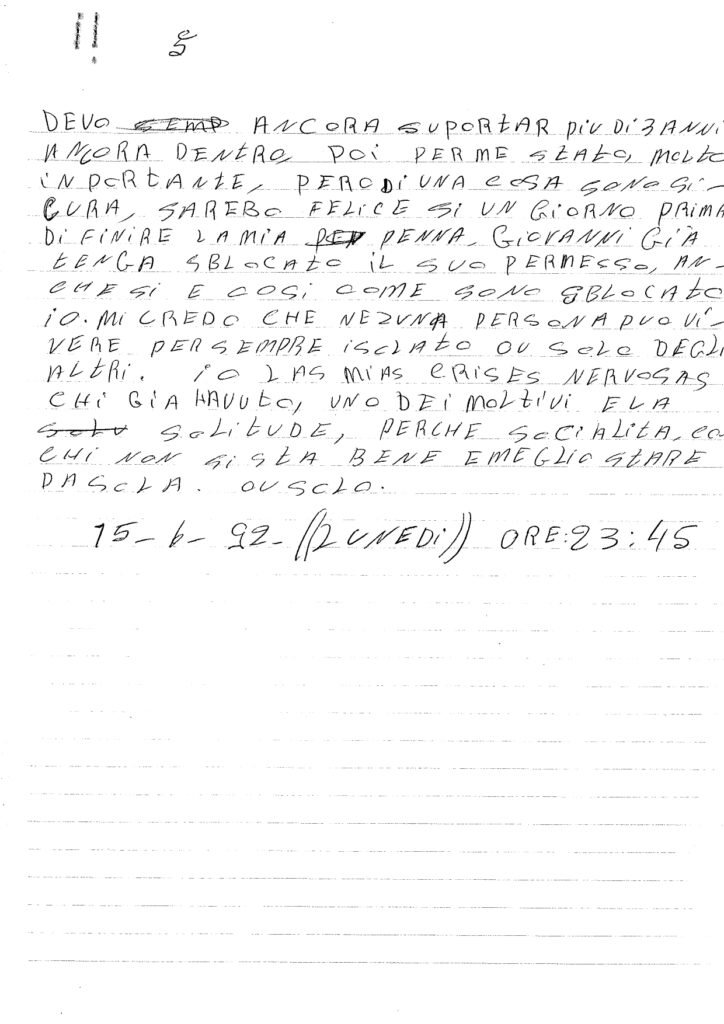 5
DEVO ANCORA SUPORTAR PIU DI 3 ANNI
ANCORA DENTRO, POI PER ME STATO, MOLTO
INPORTANTE, PERO DI UNA COSA SONO SI-
CURA, SAREBO FELICE SI UN GIORNO PRIMA
DI FINIRE LA MIA PENNA, GIOVANNI GIA
TENGA SBLOCATO IL SUO PERMESSO, AN-
CHE SI E COSI COME SONO SBLOCATO
IO. MI CREDO CHE NEZUNA PERSONA PUO VI-
VERE PER SEMPRE ISOLATO OU SOLO DEGLI
ALTRI. IO LAS MIAS CRISES NERVOSAS
CHI GIA HAVUTO, UNO DEI MOLTIVI E LA
SOLITUDE, PERCHE SOCIALITA, CO
CHI NON SI STA BENE E MEGLIO STARE
DA SOLA. OU SOLO.
15-6-92-((LUNEDI)) ORE:23:45